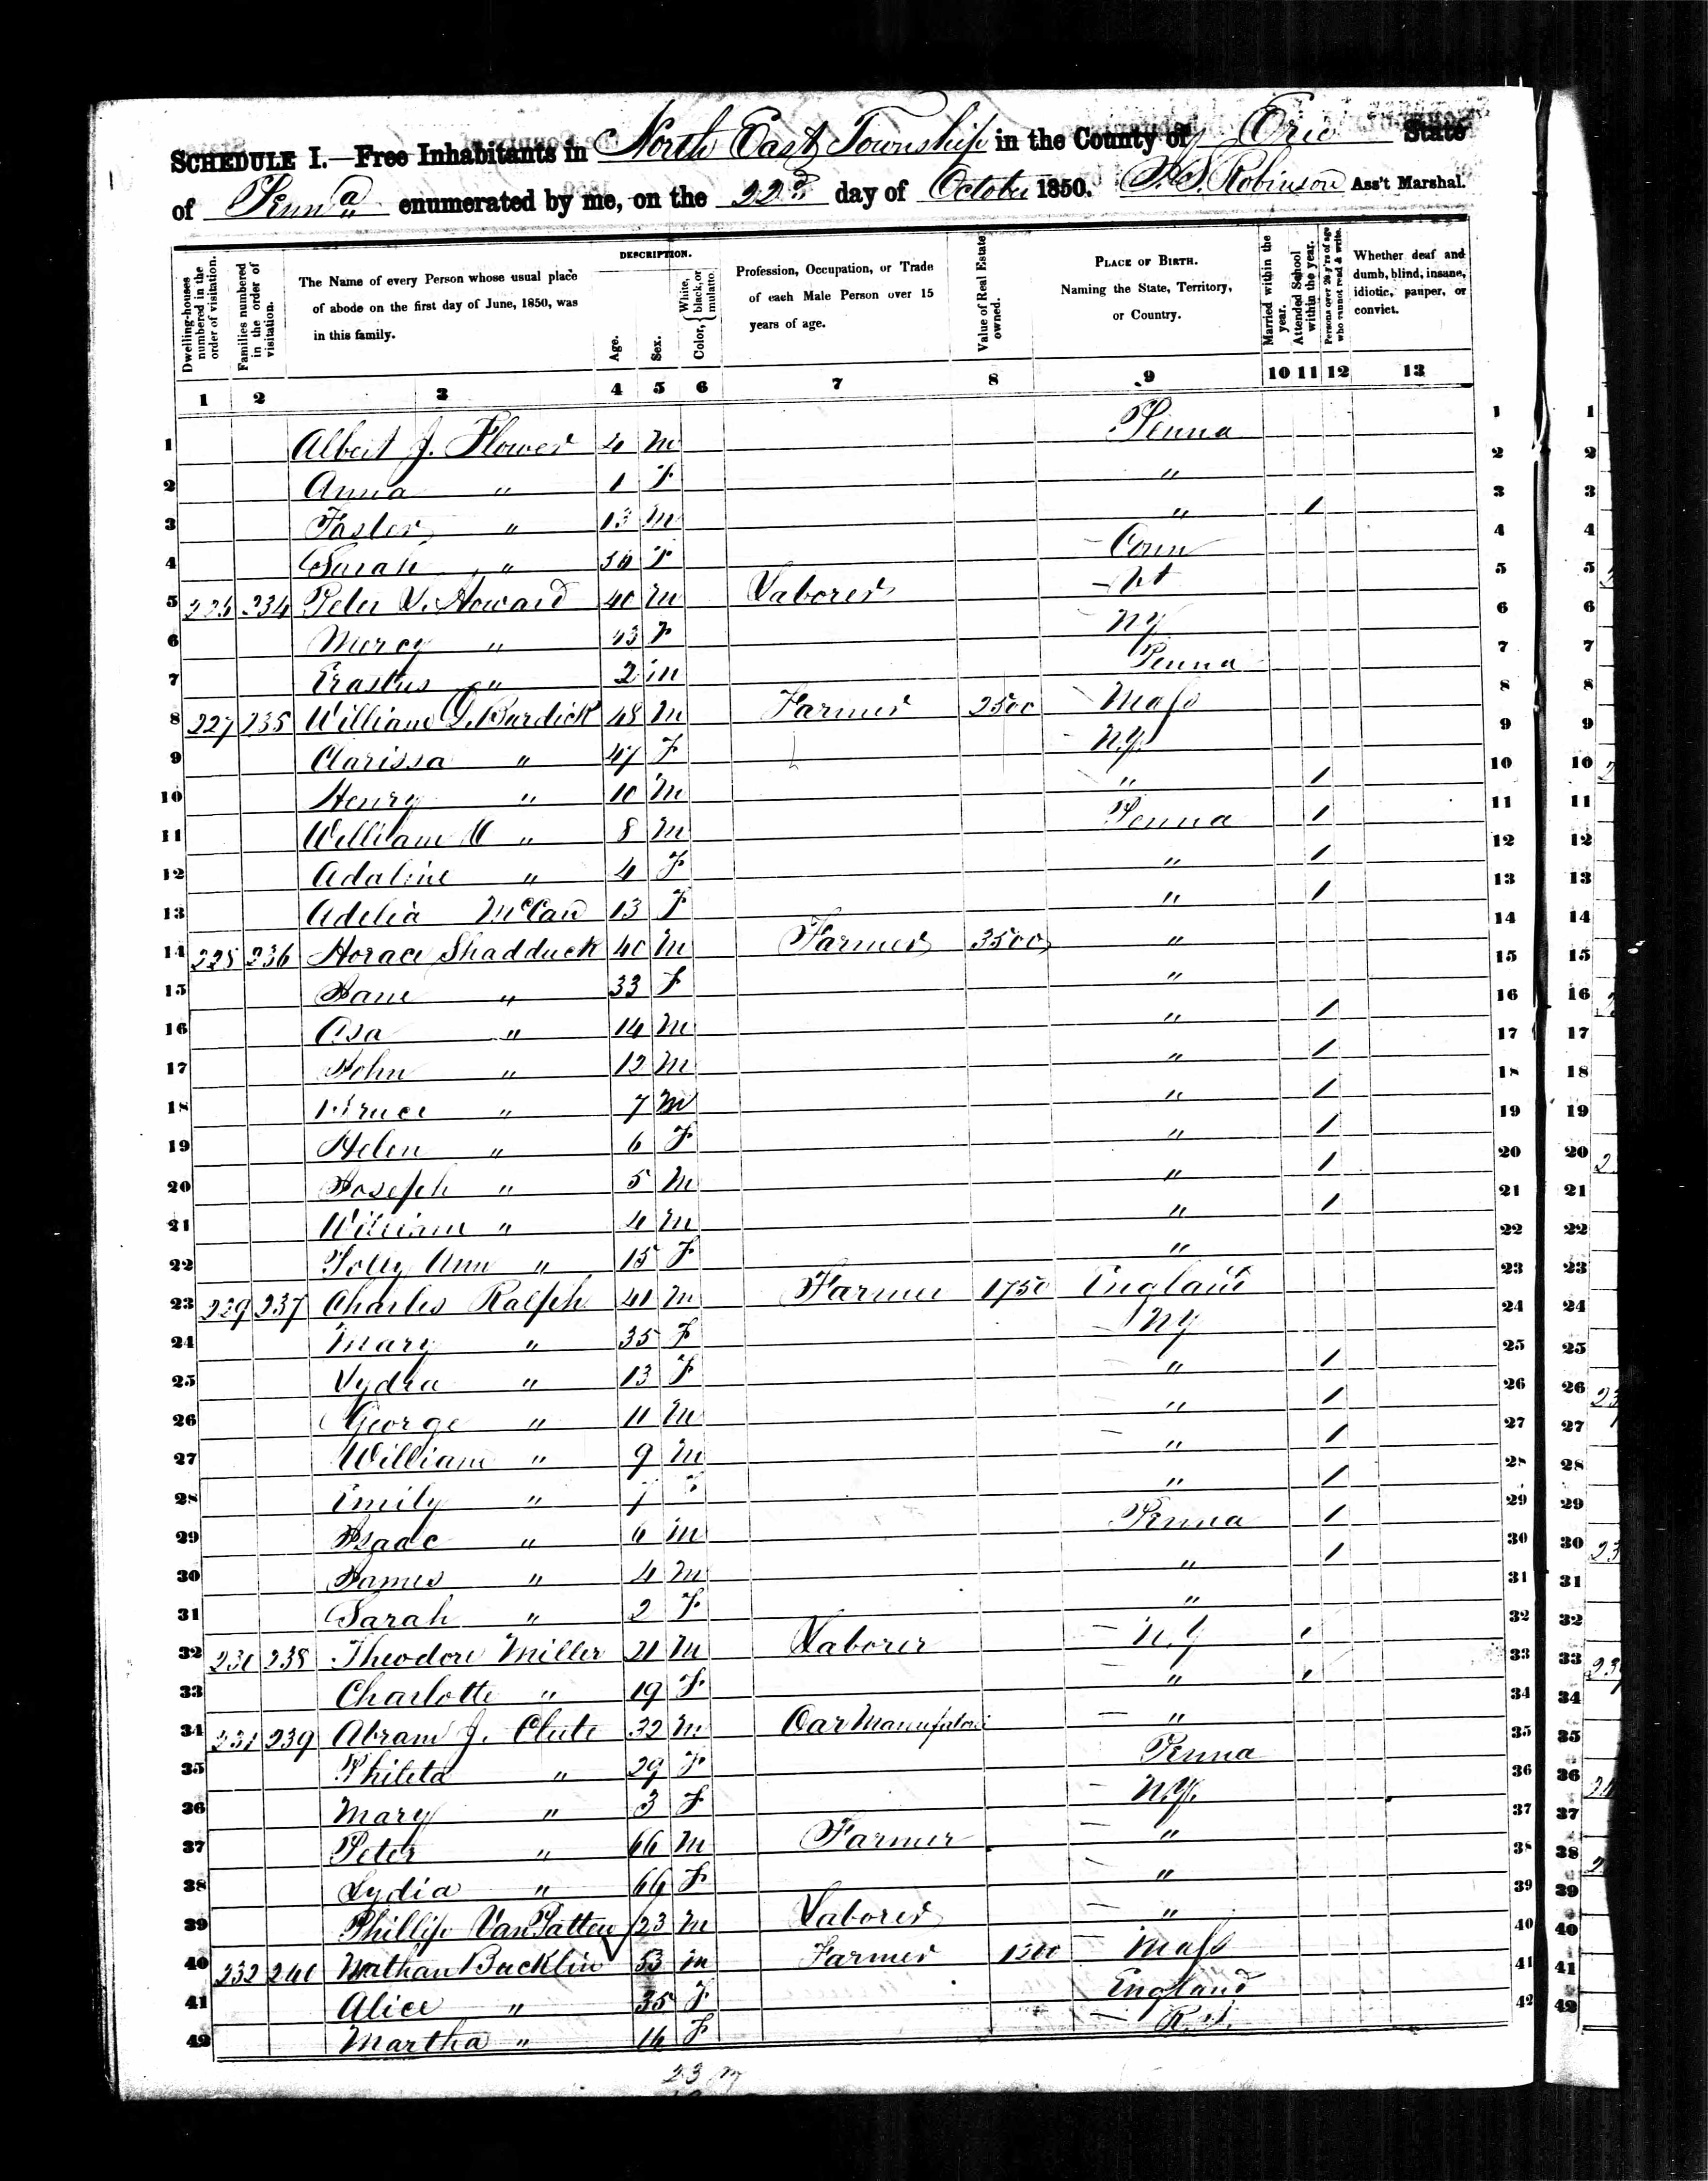 SCHEDULE I.—Free Inhabitants in North East Township in the County of Erie State
of Penna enumerated by me, on the 22d day of October 1850. Robinson Ass't Marshal.
Dwelling-houses numbered in the order of visitation.
Families numbered in the order of visitation.
The Name of every Person whose usual place of abode on the first day of June, 1850, was in this family.
DESCRIPTION.
Age.
Sex.
Color, { White, black, or mulatto.
Profession, Occupation, or Trade of each Male Person over 15 years of age.
Value of Real Estate owned.
PLACE OF BIRTH. Naming the State, Territory, or Country.
Married within the year.
Attended School within the year.
Persons over 20 y'rs of age who cannot read & write.
Whether deaf and dumb, blind, insane, idiotic, pauper, or convict.
1 2 3 4 5 6 7 8 9 10 11 12 13
1 Albert J. Flower 4 M Penna 1
2 Anna " 1 F " 2
3 Foster " 13 M " / 3
4 Sarah " F Conn 4
5 234 Peter V. Howard 40 M Laborer Vt 5
6 Mercy " 43 F NY 6
7 Erastus " 2 M Penna 7
8 227 235 William D. Burdick 48 M Farmer 2500 Mass 8
9 Clarissa " 47 F N.Y. 9
10 Henry " 10 M " / 10
11 William " 8 M Penna / 11
12 Adaline " 4 F " / 12
13 Adelia McCan 13 F " / 13
14 228 236 Horace Shadduck 40 M Farmer 3500 " 14
15 Jane " 33 F " 15
16 Asa " 14 M " / 16
17 John " 12 M " / 17
18 Bruce " 7 M " / 18
19 Helen " 6 F " / 19
20 Joseph " 5 M " / 20
21 William " 4 M " / 21
22 Polly Ann " 15 F " 22
23 229 237 Charles Ralph 41 M Farmer 1750 England 23
24 Mary " 35 F NY 24
25 Lydia " 13 F " / 25
26 George " 11 M " / 26
27 William " 9 M " / 27
28 Emily " 7 F " / 28
29 Isaac " 6 M Penna / 29
30 James " 4 M " / 30
31 Sarah " 2 F " 31
32 230 238 Theodore Miller 21 M Laborer N.Y / 32
33 Charlotte " 19 F " / 33
34 231 239 Abram J. Clute 32 M Oar Manufator " 34
35 Phileta " 29 F Penna 35
36 Mary " 3 F N.Y. 36
37 Peter " 66 M Farmer " 37
38 Lydia " 66 F " 38
39 Phillip VanPatten 23 M Laborer " 39
40 232 240 Nathan Bucklin 53 M Farmer 1200 Mass 40
41 Alice " 35 F England 41
42 Martha " 16 F R.I. 42
23 M